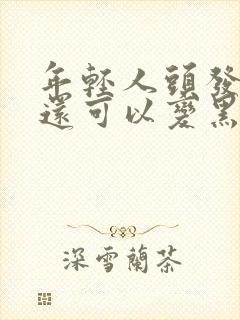 年輕人頭發
還可以變黑
深雪蘭茶